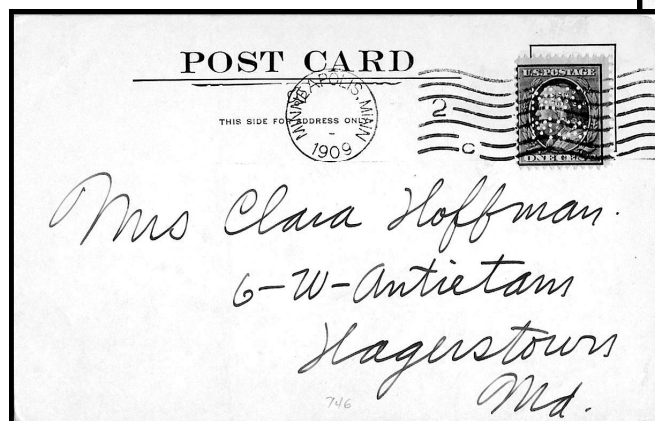 POST CARD
THIS SIDE FOR ADDRESS ONLY
MINNEAPOLIS, MINN
1909
2
C
U.S. POSTAGE
ONE CENT
Mrs Clara Hoffman.
6-W-Antietam
Hagerstown
Md.
746